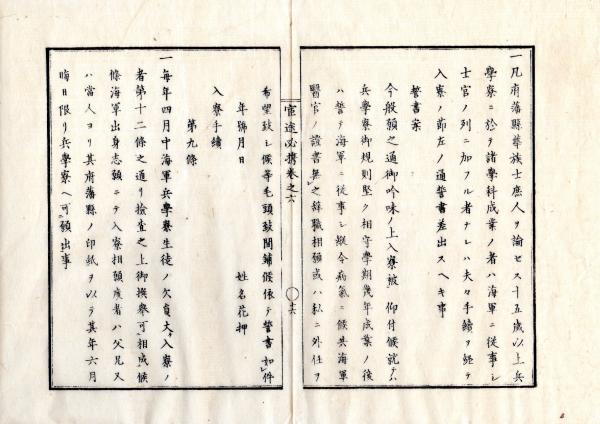 一凡府藩縣華族士庶人ヲ論セス十五歳以上兵
學寮ニ於テ諸學科成業ノ者ハ海軍ニ從事シ
士官ノ列ニ加フル者ナレハ夫々手續ヲ経テ
入寮ノ節左ノ通誓書差出スヘキ事
誓書案
今般願之通御吟味ノ上入寮被 仰付候就テハ
兵學寮御規則堅ク相守學期幾年成業ノ後
ハ誓テ海軍ニ從事シ縦令病氣ニ候共海軍
醫官ノ證書無之辞職相願或ハ私ニ外任ヲ
官途必携巻之六
十六
希望致シ候等毛頭致間鋪候依テ誓書如件
年號月日
姓名花押
入寮手續
第九條
一毎年四月中海軍兵學寮生徒ノ欠員大入寮ノ
者第十二條之通リ撿査之上御撰擧可相成候
條海軍出身志願ニテ入寮相願度者ハ父兄又
ハ當人ヨリ其府藩縣ノ印紙ヲ以テ其年六月
晦日限リ兵學寮ヘ可願出事